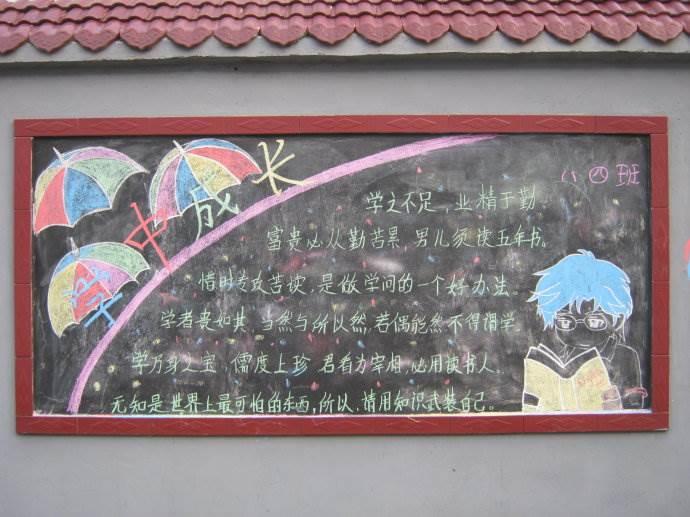 学中成长
八四班
学之不足，业精于勤。
富贵必从勤苦黑，男儿须读五车书。
惜时专攻苦读，是做学问的一个好办法。
学者贵知其当然与所以然，若偶能然不得谓学。
学乃身之宝，儒度上珍 君看为宰相，必用读书人。
无知是世界上最可怕的东西，所以，请用知识武装自己。